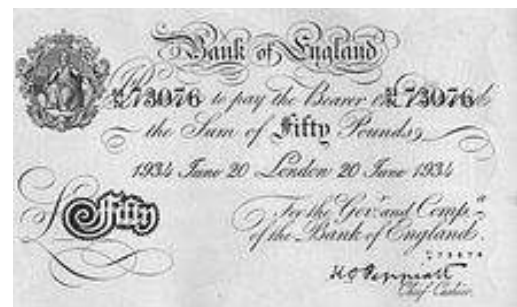 Bank of England
73076 to pay the Bearer 73076
the Sum of Fifty Pounds
1934 June 20 London 20 June 1934
For the Govr. and Compa.
£Fifty
of the Bank of England.
Chief Cashier.